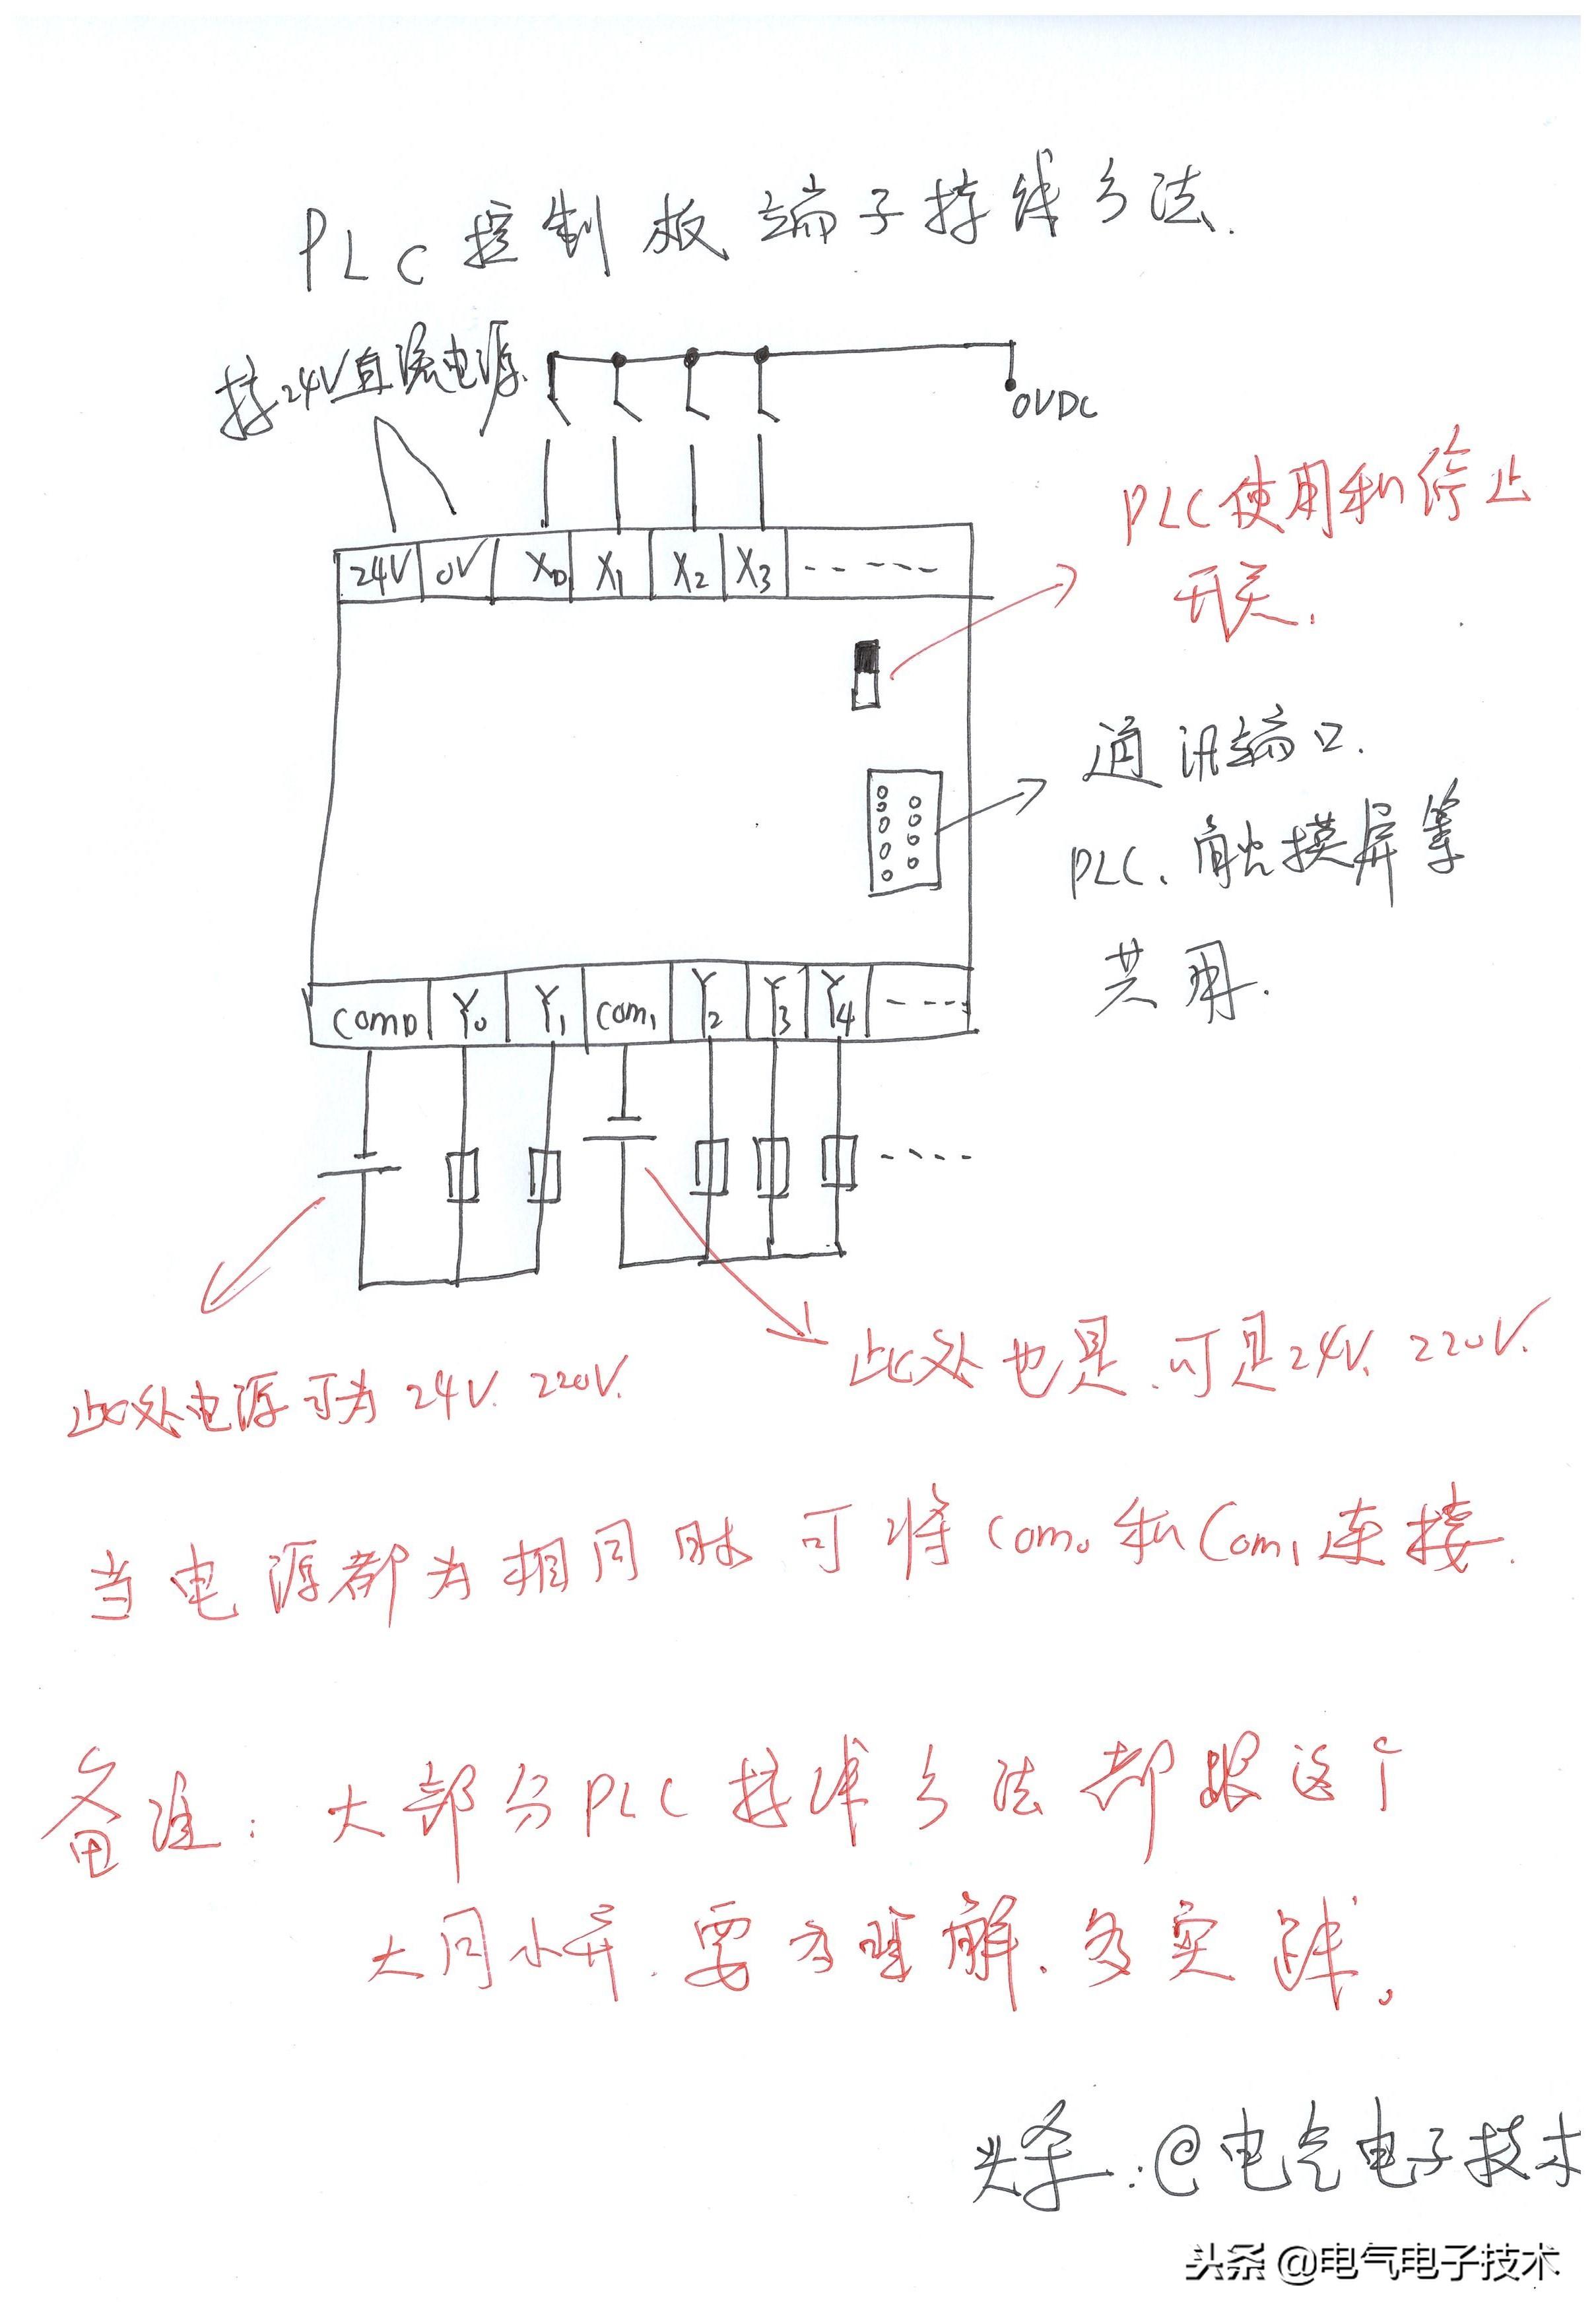 PLC控制板端子接线方法.
接24V直流电源.
0VDC
24V 0V X0 X1 X2 X3 -----
PLC使用和停止
开关.
通讯端口.
PLC、触摸屏等
共用.
com0 Y0 Y1 com1 Y2 Y3 Y4 ----
----
此处电源可为24V、220V.
此处也是、可是24V、220V.
当电源都为相同时可将com0和Com1连接.
备注:大部分PLC接线方法都跟这个
大同小异.要多理解.多实践。
头条:@电气电子技术
头条 @电气电子技术